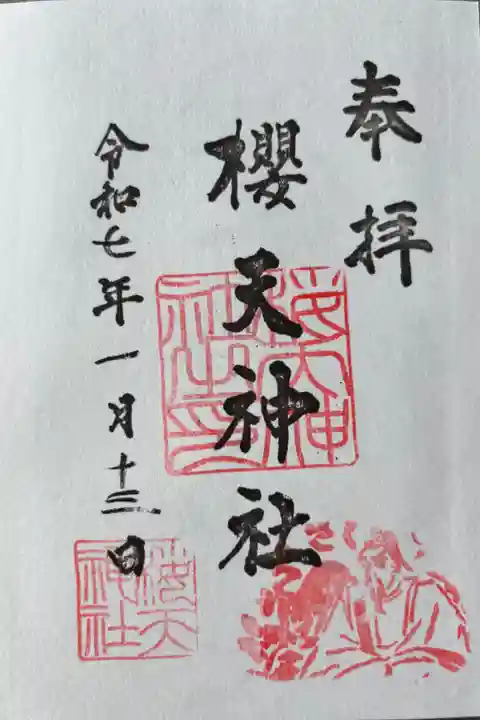 奉拝
櫻天神社
令和七年一月十三日
桜天神社之印
桜天神社